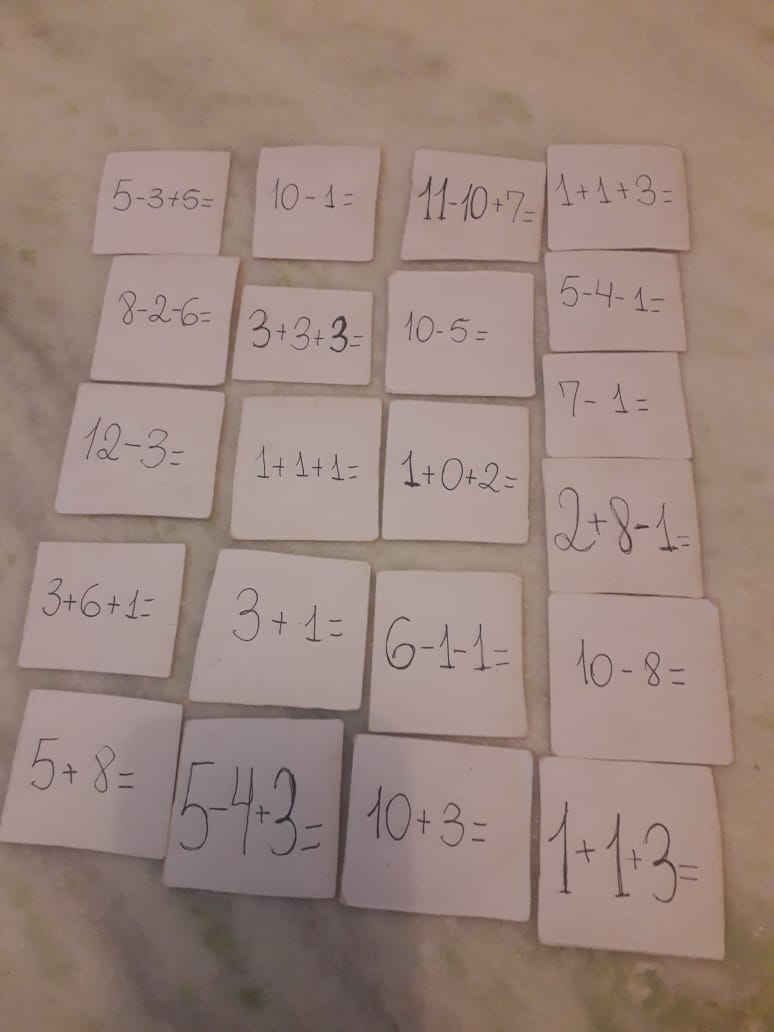 5-3+5=
10-1=
11-10+7=
1+1+3=
8-2-6=
3+3+3=
10-5=
5-4-1=
7-1=
12-3=
1+1+1=
1+0+2=
2+8-1=
3+6+1=
3+1=
6-1-1=
10-8=
5+8=
5-4+3=
10+3=
1+1+3=